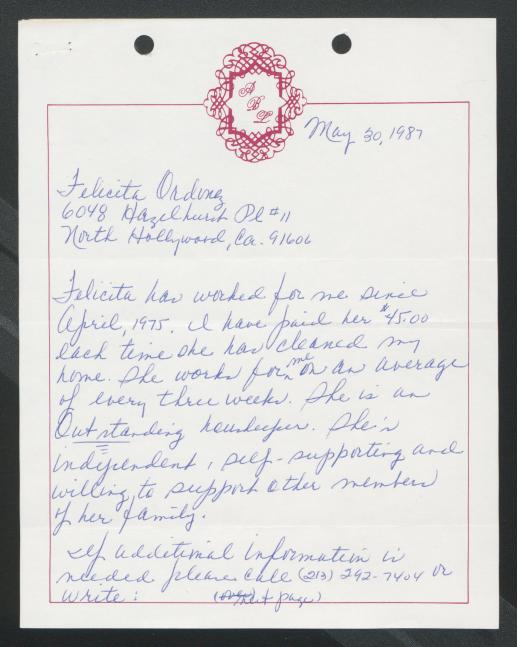 A
B
L
May 30, 1987
Felicita Ordonez
6048 Hazelhurst Pl #11
North Hollywood, Ca. 91606
Felicita has worked for me since
April, 1975. I have paid her $45.00
each time she has cleaned my
home. She works for me on an average
of every three weeks. She is an
Outstanding housekeeper. She's
independent, self-supporting and
willing to support other members
of her family.
If additional information is
needed please call (213) 292-7404 or
write: (next page)